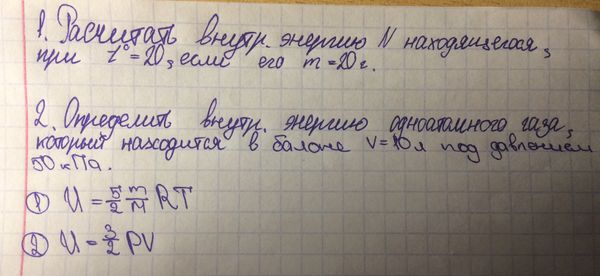 1. Расчитать внутр. энергию N находящегося,
при t°=20, если его m=20г.
2. Определить внутр. энергию одноатомного газа,
который находится в балоне V=10л под давлением
50 кПа.
① U = 5/2 m/M RT
② U = 3/2 PV